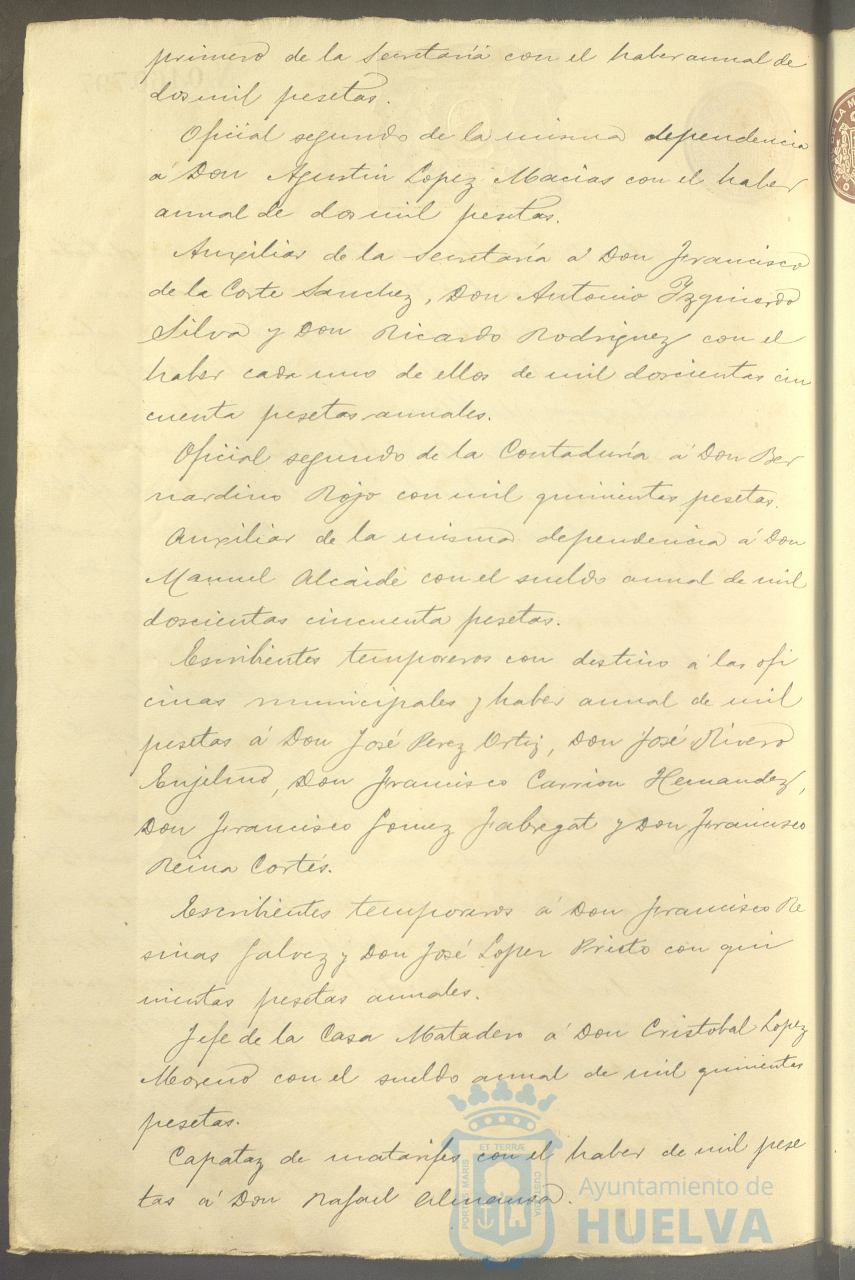 primero de la Secretaría con el haber anual de
dos mil pesetas.
Oficial segundo de la misma dependencia
á Don Agustin Lopez Macias con el haber
anual de dos mil pesetas.
Auxiliar de la Secretaría á Don Francisco
de la Corte Sanchez, Don Antonio Yzquierdo
Silva y Don Ricardo Rodriguez con el
haber cada uno de ellos de mil doscientas cin
cuenta pesetas anuales.
Oficial segundo de la Contaduría á Don Ber
nardino Rojo con mil quinientas pesetas.
Auxiliar de la misma dependencia á Don
Manuel Alcaide con el sueldo anual de mil
doscientas cincuenta pesetas.
Escribientes temporeros con destino á las ofi
cinas municipales y haber anual de mil
pesetas á Don José Perez Ortiz, Don José Rivero
Don Francisco Carrion Hernandez,
Don Francisco Gomez Fabregat y Don Francisco
Reina Cortés.
Escribientes temporeros á Don Francisco Re
sinas Galvez y Don José Lopez Prieto con qui
nientas pesetas anuales.
Jefe de la Casa Matadero á Don Cristobal Lopez
Moreno con el sueldo anual de mil quinientas
pesetas.
Capataz de matarifes con el haber de mil pese
tas á Don Rafael Almansa.
PORTUS MARIS ET TERRÆ CUSTODIA
Ayuntamiento de
HUELVA